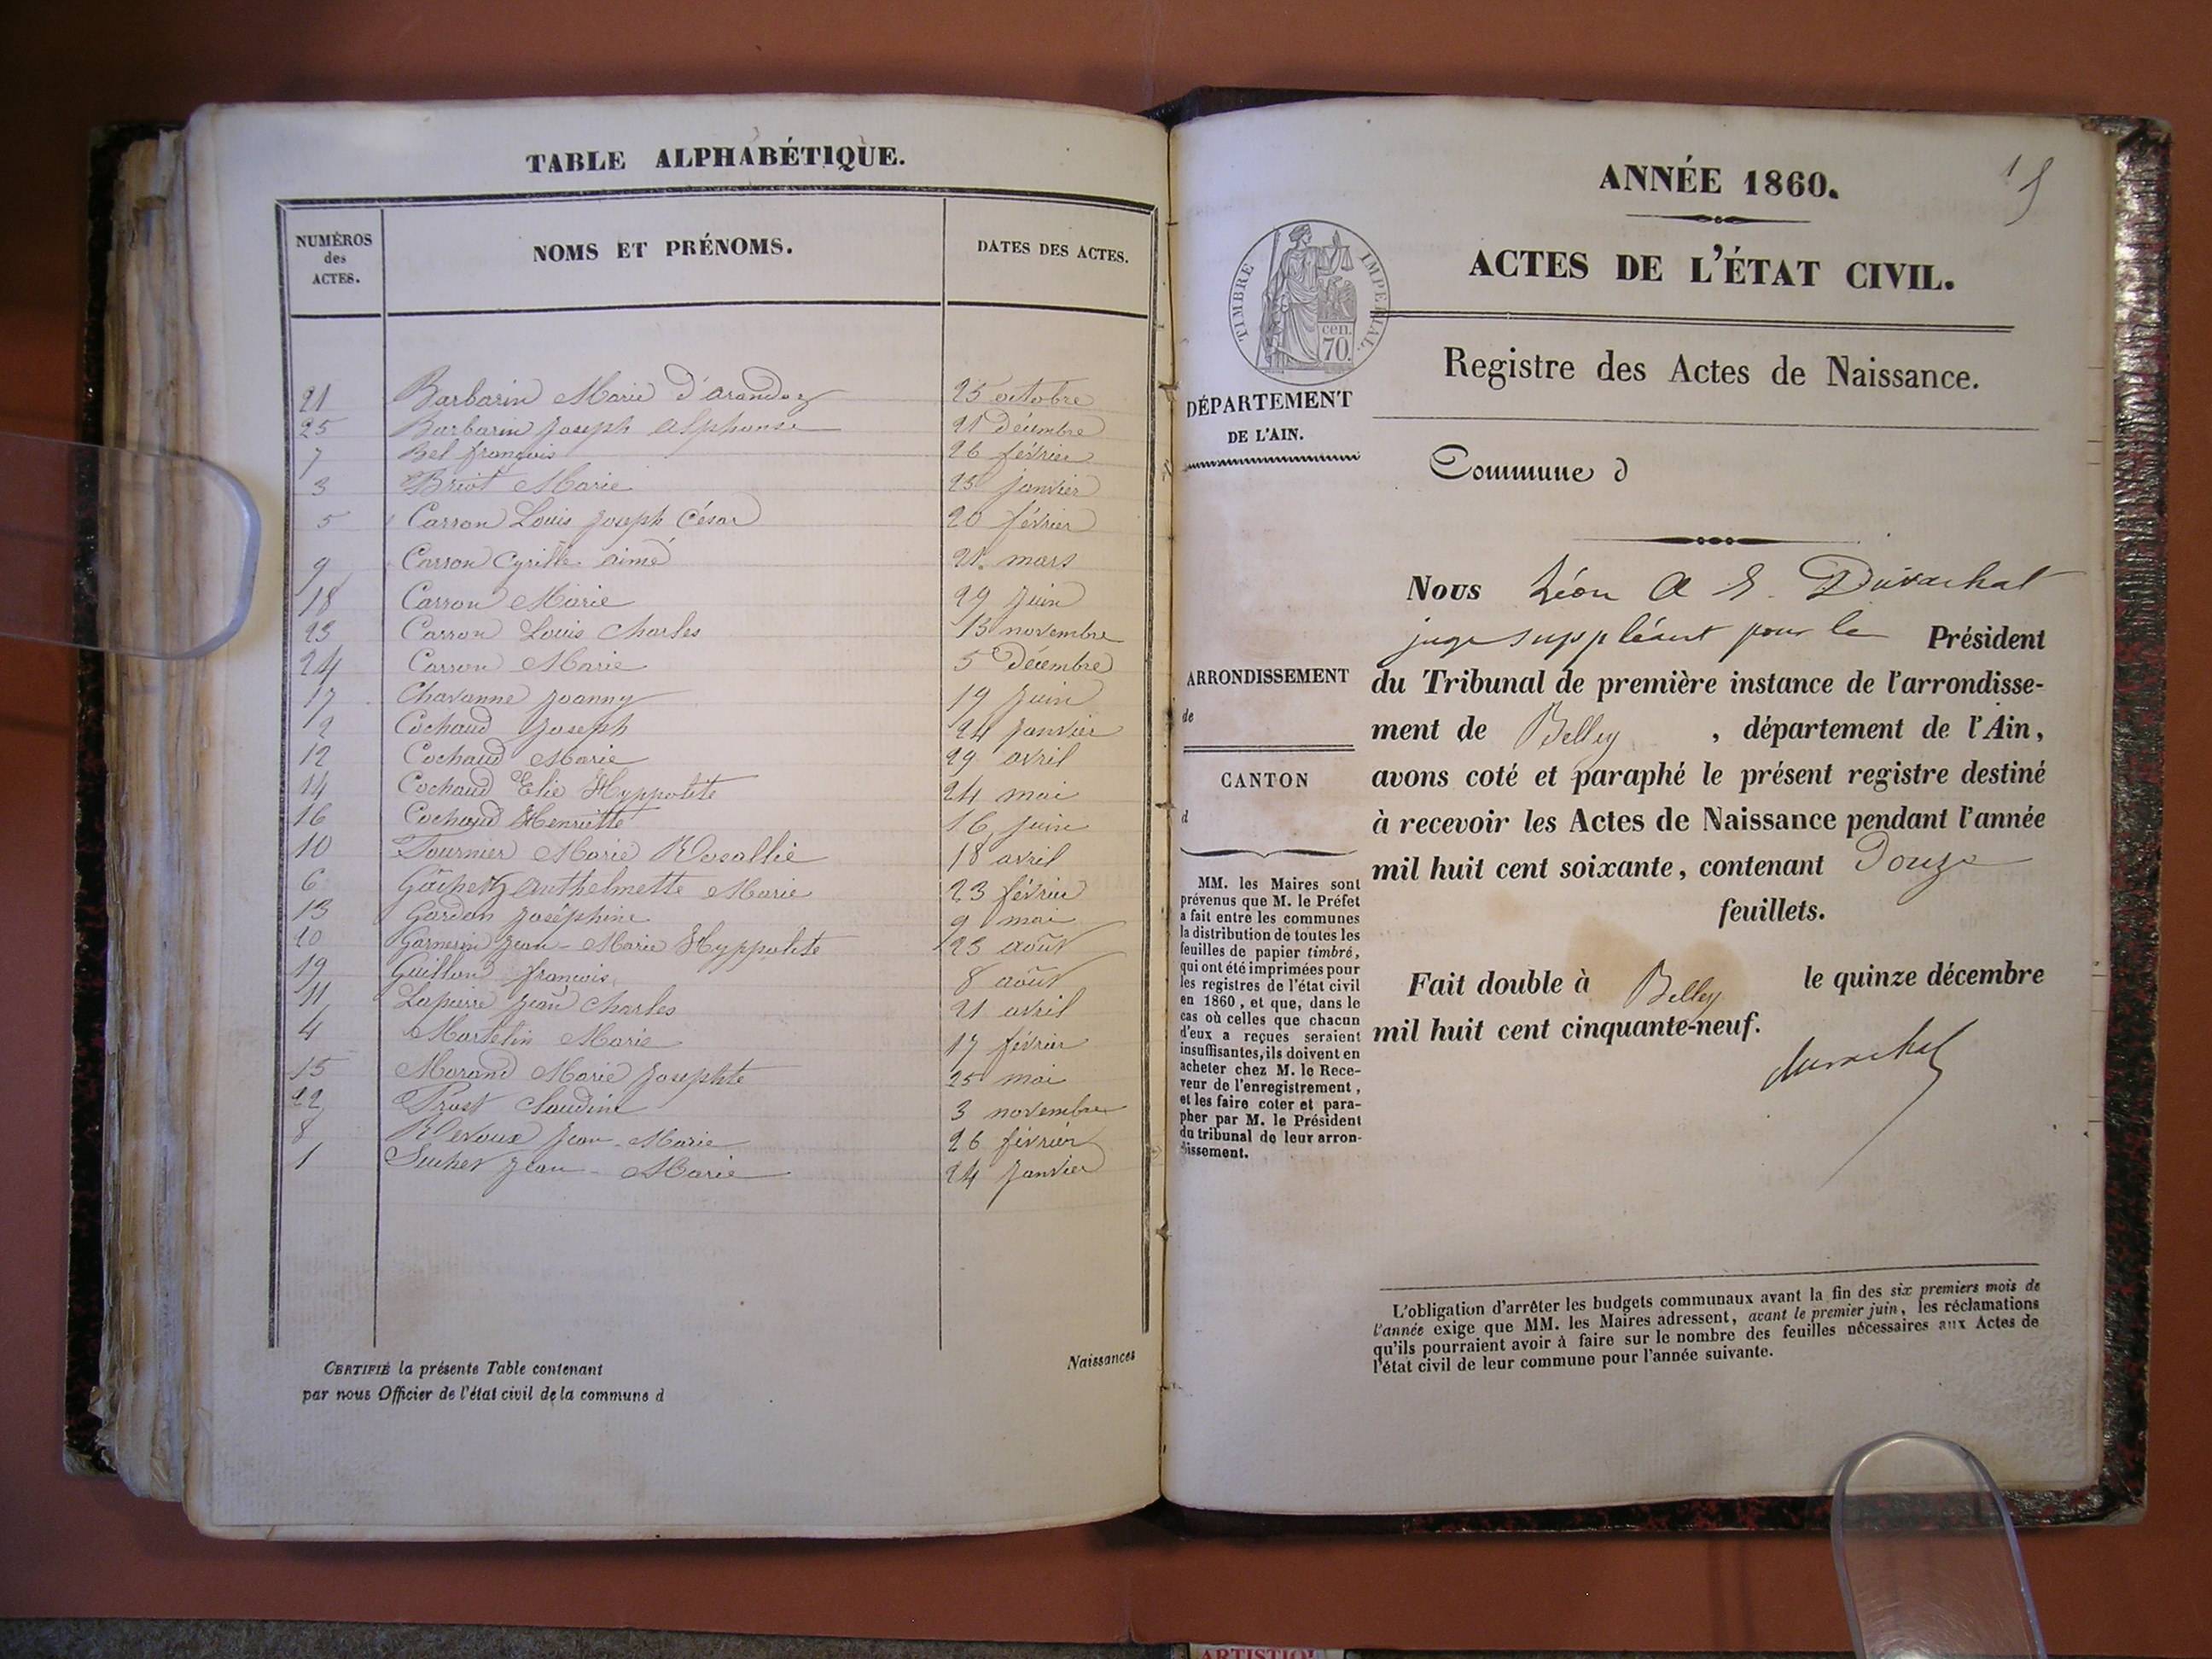 TABLE ALPHABÉTIQUE.
NUMÉROS des ACTES. NOMS ET PRÉNOMS. DATES DES ACTES.
21 Barbarin Marie d'arandaz 25 octobre
25 Barbarin Joseph Alphonse 21 Décembre
7 Bel françois 26 février
3 Briot Marie 25 janvier
5 Carron Louis Joseph César 20 février
9 Carron Cyrille aimé 21 mars
18 Carron Marie 29 Juin
23 Carron Louis Charles 13 novembre
24 Carron Marie 5 Décembre
17 Chavanne Joanny 19 Juin
2 Cochaud Joseph 24 Janvier
12 Cochaud Marie 29 avril
14 Cochaud Elie Hyppolite 24 mai
16 Cochaud Henriette 16 Juin
10 Fournier Marie Rosallie 18 avril
6 Gâchet Anthelmette Marie 23 février
13 Gardon Joséphine 9 mai
20 Garnerin Jean-Marie Hyppolite 23 août
19 Guillon françois 8 août
11 Lapierre Jean Charles 21 avril
4 Martelin Marie 17 février
15 Morand Marie Josephte 25 mai
22 Prost Claudine 3 novembre
8 Revoux Jean-Marie 26 février
1 Suchet Jean-Marie 24 Janvier
CERTIFIÉ la présente Table contenant Naissances
par nous Officier de l'état civil de la commune d
15
ANNÉE 1860.
ACTES DE L'ÉTAT CIVIL.
TIMBRE IMPERIAL.
cen.
70.
Registre des Actes de Naissance.
DÉPARTEMENT
DE L'AIN.
Commune d
ARRONDISSEMENT
de
CANTON
d
MM. les Maires sont
prévenus que M. le Préfet
a fait entre les communes
la distribution de toutes les
feuilles de papier timbré,
qui ont été imprimées pour
les registres de l'état civil
en 1860, et que, dans le
cas où celles que chacun
d'eux a reçues seraient
insuffisantes, ils doivent en
acheter chez M. le Rece-
veur de l'enregistrement,
et les faire coter et para-
pher par M. le Président
du tribunal de leur arron-
dissement.
Nous Léon A E. Durachat
juge suppléant pour le Président
du Tribunal de première instance de l'arrondisse-
ment de Belley, département de l'Ain,
avons coté et paraphé le présent registre destiné
à recevoir les Actes de Naissance pendant l'année
mil huit cent soixante, contenant Douze
feuillets.
Fait double à Belley le quinze décembre
mil huit cent cinquante-neuf.
durachat
L'obligation d'arrêter les budgets communaux avant la fin des six premiers mois de
l'année exige que MM. les Maires adressent, avant le premier juin, les réclamations
qu'ils pourraient avoir à faire sur le nombre des feuilles nécessaires aux Actes de
l'état civil de leur commune pour l'année suivante.